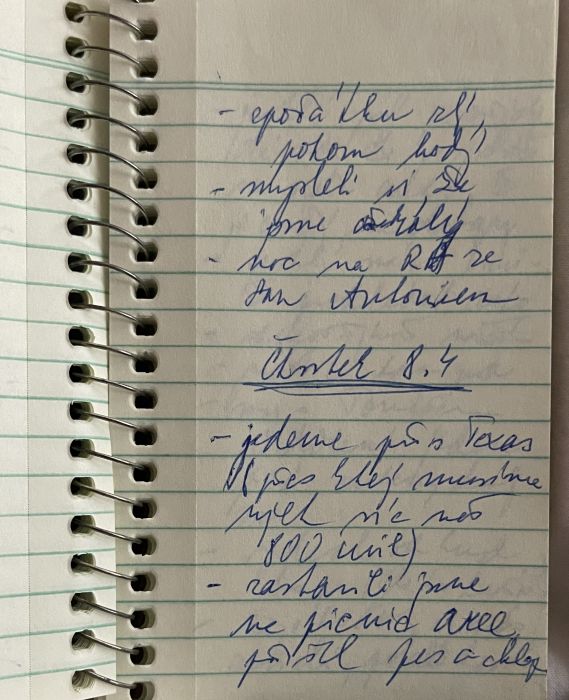 - zpočátku zlý
potom hodý
- mysleli si že
jsme
- noc na RA ze
San Antoniem
Čtvrtek 8.4
- jedeme přes Texas
(přes který musíme
ujet víc než
800 mil)
- zastavili jsme
na picnic aree,
přišel pes a chlap